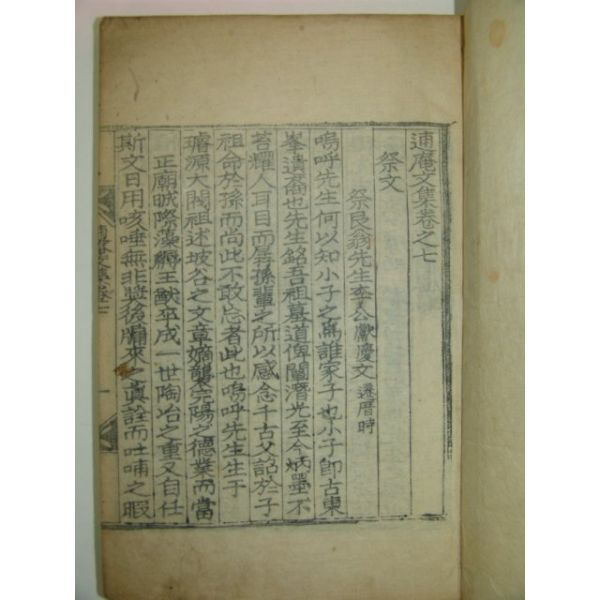 逋庵文集卷之七
祭文
祭良翁先生李公獻慶文 還曆時
嗚呼先生何以知小子之爲誰家子也小子卽古東
峯遺裔也先生銘吾祖墓道俾闡潛光至今炳墨不
昏耀人耳目而孱孫輩之所以感念千古父詔於子
祖命於孫而尚此不敢忘者此也嗚呼先生生于
璿源大閥祖述坡谷之文章嫡襲完陽之德業而當
正廟盛際藻黼王猷卒成一世陶冶之重又自任
斯文日用咳唾無非奬後牖來之眞詮而吐哺之暇